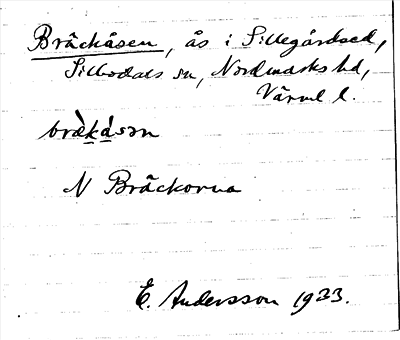 Bräckåsen, ås i Sillegårdsed,
Sillbodals sn, Nordmarks hd,
Värml l.
bræ̀ká̱sən
N Bräckorna
E. Andersson 1933.